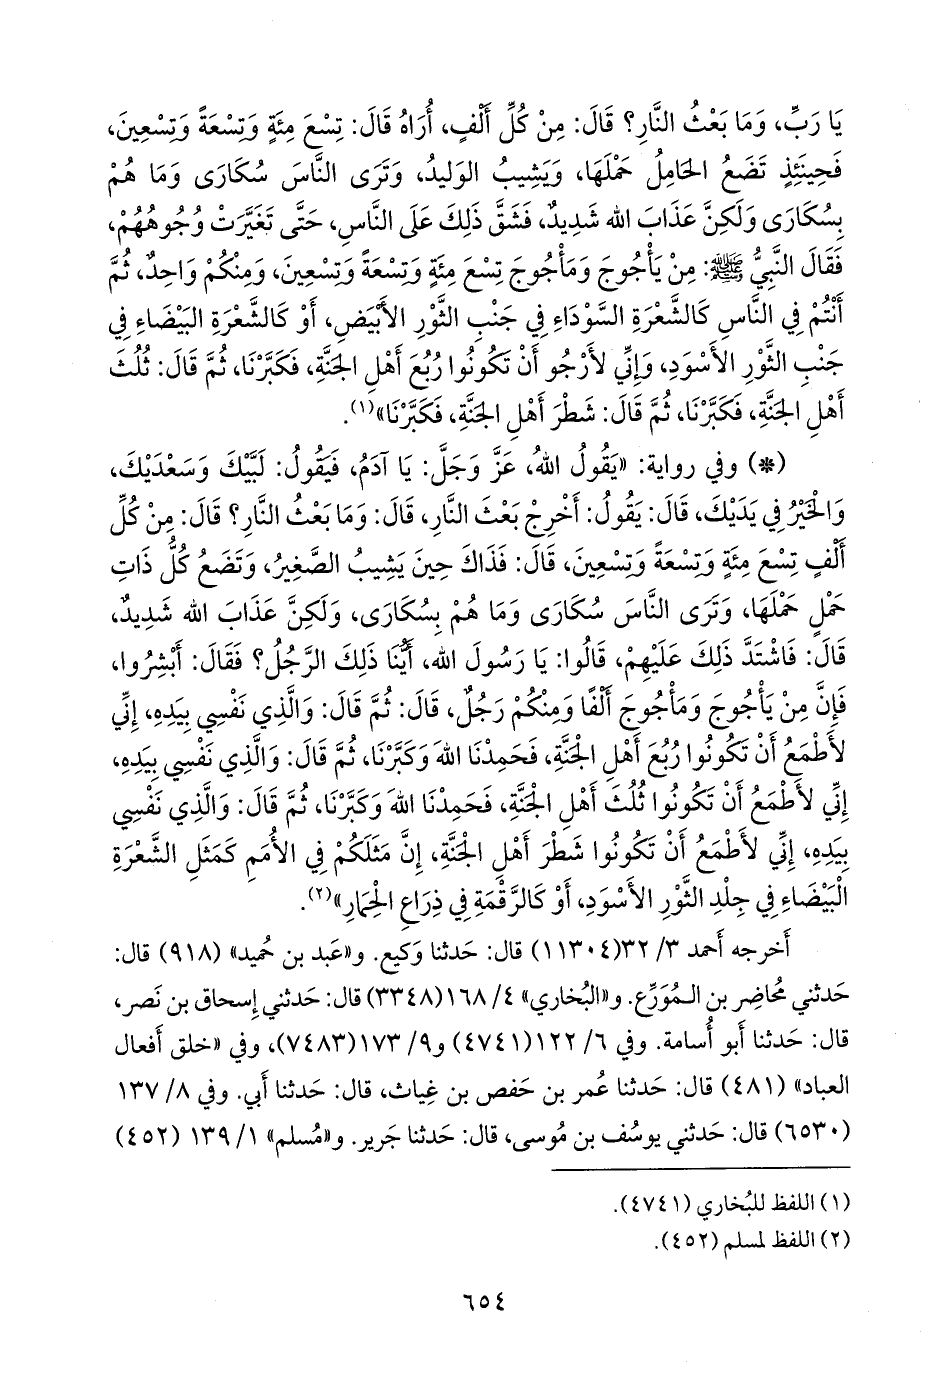 يَا رَبِّ، وَمَا بَعْثُ النَّارِ؟ قَالَ: مِنْ كُلِّ أَلْفٍ، أُرَاهُ قَالَ: تِسْعَ مِئَةٍ وَتِسْعَةً وَتِسْعِينَ،
فَحِينَئِذٍ تَضَعُ الحَامِلُ حَمْلَهَا، وَيَشِيبُ الوَلِيدُ، وَتَرَى النَّاسَ سُكَارَى وَمَا هُمْ
بِسُكَارَى وَلَكِنَّ عَذَابَ الله شَدِيدٌ، فَشَقَّ ذَلِكَ عَلَى النَّاسِ، حَتَّى تَغَيَّرَتْ وُجُوهُهُمْ،
فَقَالَ النَّبِيُّ ﷺ: مِنْ يَأْجُوجَ وَمَأْجُوجَ تِسْعَ مِئَةٍ وَتِسْعَةً وَتِسْعِينَ، وَمِنْكُمْ وَاحِدٌ، ثُمَّ
أَنْتُمْ فِي النَّاسِ كَالشَّعْرَةِ السَّوْدَاءِ فِي جَنْبِ الثَّوْرِ الأَبْيَضِ، أَوْ كَالشَّعْرَةِ البَيْضَاءِ فِي
جَنْبِ الثَّوْرِ الأَسْوَدِ، وَإِنِّي لأَرْجُو أَنْ تَكُونُوا رُبُعَ أَهْلِ الجَنَّةِ، فَكَبَّرْنَا، ثُمَّ قَالَ: ثُلُثَ
أَهْلِ الجَنَّةِ، فَكَبَّرْنَا، ثُمَّ قَالَ: شَطْرَ أَهْلِ الجَنَّةِ، فَكَبَّرْنَا»(١).
(*) وفي رواية: «يَقُولُ اللهُ، عَزَّ وَجَلَّ: يَا آدَمُ، فَيَقُولُ: لَبَّيْكَ وَسَعْدَيْكَ،
وَالْخَيْرُ فِي يَدَيْكَ، قَالَ: يَقُولُ: أَخْرِجْ بَعْثَ النَّارِ، قَالَ: وَمَا بَعْثُ النَّارِ؟ قَالَ: مِنْ كُلِّ
أَلْفٍ تِسْعَ مِئَةٍ وَتِسْعَةً وَتِسْعِينَ، قَالَ: فَذَاكَ حِينَ يَشِيبُ الصَّغِيرُ، وَتَضَعُ كُلُّ ذَاتِ
حَمْلٍ حَمْلَهَا، وَتَرَى النَّاسَ سُكَارَى وَمَا هُمْ بِسُكَارَى، وَلَكِنَّ عَذَابَ الله شَدِيدٌ،
قَالَ: فَاشْتَدَّ ذَلِكَ عَلَيْهِمْ، قَالُوا: يَا رَسُولَ الله، أَيُّنَا ذَلِكَ الرَّجُلُ؟ فَقَالَ: أَبْشِرُوا،
فَإِنَّ مِنْ يَأْجُوجَ وَمَأْجُوجَ أَلْفًا وَمِنْكُمْ رَجُلٌ، قَالَ: ثُمَّ قَالَ: وَالَّذِي نَفْسِي بِيَدِهِ، إِنِّي
لأَطْمَعُ أَنْ تَكُونُوا رُبُعَ أَهْلِ الجَنَّةِ، فَحَمِدْنَا اللهَ وَكَبَّرْنَا، ثُمَّ قَالَ: وَالَّذِي نَفْسِي بِيَدِهِ،
إِنِّي لأَطْمَعُ أَنْ تَكُونُوا ثُلُثَ أَهْلِ الجَنَّةِ، فَحَمِدْنَا اللهَ وَكَبَّرْنَا، ثُمَّ قَالَ: وَالَّذِي نَفْسِي
بِيَدِهِ، إِنِّي لأَطْمَعُ أَنْ تَكُونُوا شَطْرَ أَهْلِ الجَنَّةِ، إِنَّ مَثَلَكُمْ فِي الأُمَمِ كَمَثَلِ الشَّعْرَةِ
الْبَيْضَاءِ فِي جِلْدِ الثَّوْرِ الأَسْوَدِ، أَوْ كَالرَّقْمَةِ فِي ذِرَاعِ الْحِمَارِ»(٢).
أَخرجه أَحمد ٣/ ٣٢(١١٣٠٤) قال: حَدثنا وَكيع. و«عَبد بن حُميد» (٩١٨) قال:
حَدثني مُحاضِر بن المُوَرِّع. و«البُخاري» ٤/ ١٦٨(٣٣٤٨) قال: حَدثني إِسحاق بن نَصر،
قال: حَدثنا أَبو أُسامة. وفي ٦/ ١٢٢(٤٧٤١) و٩/ ١٧٣(٧٤٨٣)، وفي «خلق أَفعال
العباد» (٤٨١) قال: حَدثنا عُمر بن حَفص بن غِياث، قال: حَدثنا أَبي. وفي ٨/ ١٣٧
(٦٥٣٠) قال: حَدثني يوسُف بن مُوسى، قال: حَدثنا جَرير. و«مُسلم» ١/ ١٣٩ (٤٥٢)
(١) اللفظ للبُخاري (٤٧٤١).
(٢) اللفظ لمسلم (٤٥٢).
٦٥٤